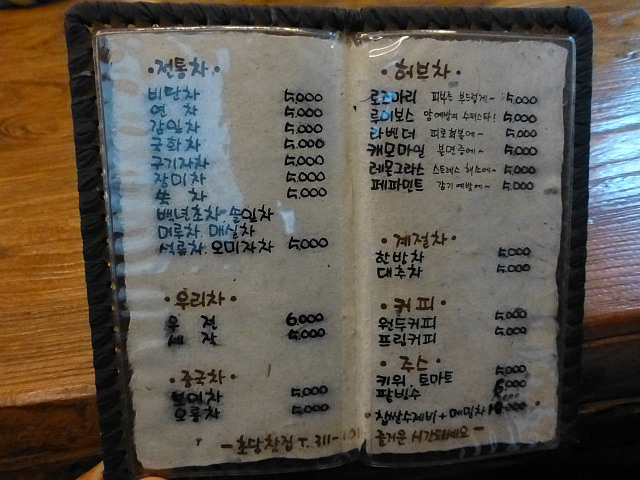 ·전통차·
비단차 5,000
연 차 5,000
감잎차 5,000
국화차 5,000
구기자차 5,000
장미차 5,000
쑥 차
백년초차. 솔잎차
머루차. 매실차
석류차. 오미자차 5,000
·우리차·
우 전 6,000
세 작 5,000
·중국차·
보이차 5,000
오룡차 5,000
- 초당찻집 T. 311-
·허브차·
로즈마리 피부를 부드럽게~ 5,000
루이보스 암예방의 수퍼스타! 5,000
라벤더 피로회복에~ 5,000
캐모마일 불면증에~ 5,000
레몬그라스 스트레스 해소에~ 5,000
페파민트 감기예방에~ 5,000
·계절차·
한방차 5,000
대추차 5,000
·커피·
원두커피 5,000
프림커피 5,000
·주스·
키위. 토마토 5,000
팥빙수
·찹쌀수제비+메밀차
즐거운 시간되세요 -